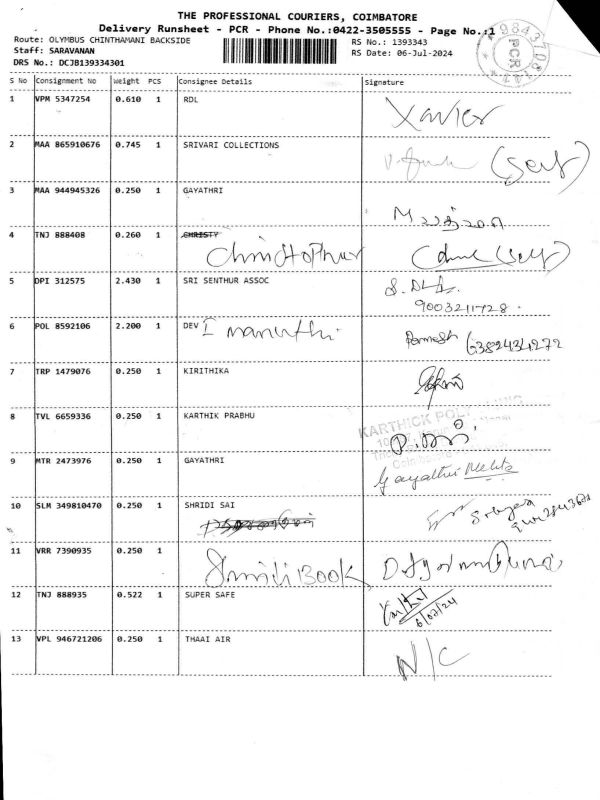 THE PROFESSIONAL COURIERS, COIMBATORE
Delivery Runsheet - PCR - Phone No.:0422-3505555 - Page No.:1
Route: OLYMBUS CHINTHAMANI BACKSIDE RS No.: 1393343
Staff: SARAVANAN RS Date: 06-Jul-2024
DRS No.: DCJB139334301
PCR
S No Consignment No Weight PCS Consignee Details Signature
1 VPM 5347254 0.610 1 RDL Xavier
2 MAA 865910676 0.745 1 SRIVARI COLLECTIONS (Self)
3 MAA 944945326 0.250 1 GAYATHRI
4 TNJ 888408 0.260 1 CHRISTY (Self)
5 DPI 312575 2.430 1 SRI SENTHUR ASSOC
9003211728
6 POL 8592106 2.200 1 DEV
7 TRP 1479076 0.250 1 KIRITHIKA
8 TVL 6659336 0.250 1 KARTHIK PRABHU
KARTHICK
9 MTR 2473976 0.250 1 GAYATHRI Gayathri Mehta
10 SLM 349810470 0.250 1 SHRIDI SAI
11 VRR 7390935 0.250 1 Book
12 TNJ 888935 0.522 1 SUPER SAFE
6/07/24
13 VPL 946721206 0.250 1 THAAI AIR N/C